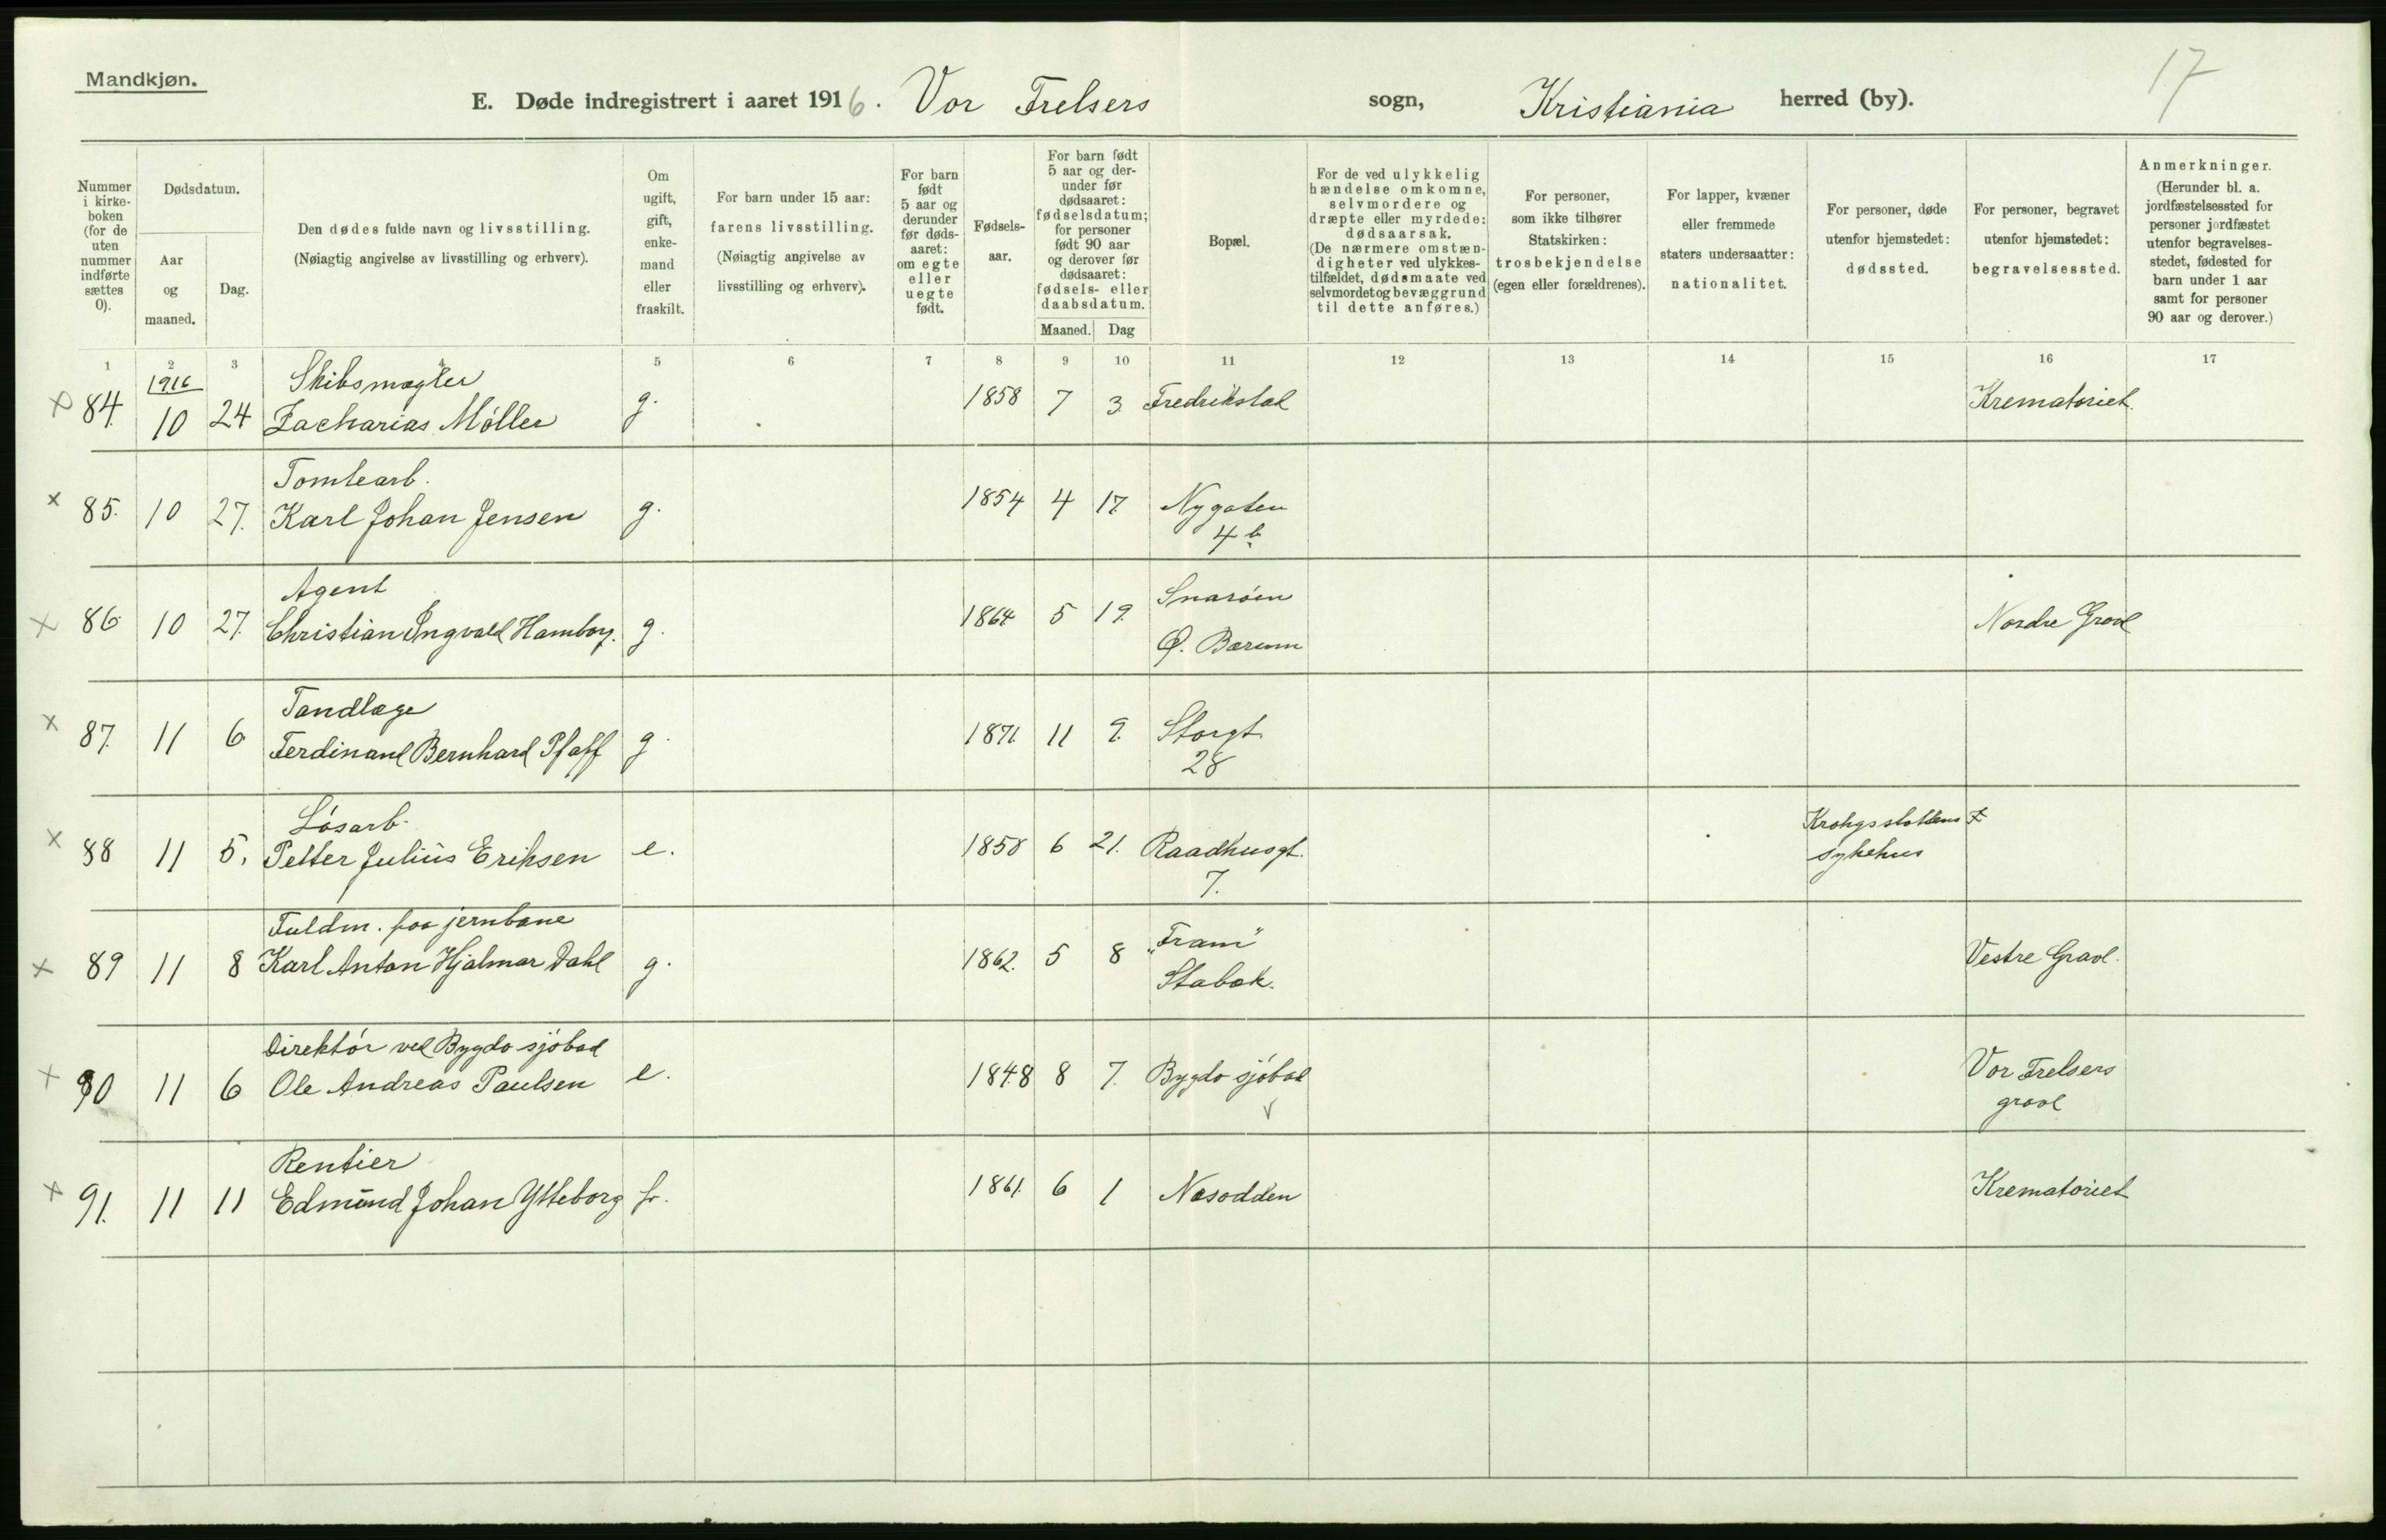 Mandkjøn.
17
E. Døde indregistrert i aaret 1916. Vor Frelsers sogn, Kristiania herred (by).
Nummer i kirke-boken (for de uten nummer indførte sættes 0).
Dødsdatum.
Aar og maaned.
Dag.
Den dødes fulde navn og livsstilling.
(Nøiagtig angivelse av livsstilling og erhverv).
Om ugift, gift, enke-mand eller fraskilt.
For barn under 15 aar:
farens livsstilling.
(Nøiagtig angivelse av livsstilling og erhverv).
For barn født 5 aar og derunder før døds-aaret: om egte eller uegte født.
Fødsels-aar.
For barn født 5 aar og der-under før dødsaaret: fødselsdatum; for personer født 90 aar og derover før dødsaaret: fødsels- eller daabsdatum.
Maaned. Dag
Bopæl.
For de ved ulykkelig hændelse omkomne, selvmordere og dræpte eller myrdede: dødsaarsak. (De nærmere omstæn-digheter ved ulykkes-tilfældet, dødsmaate ved selvmordet og bevæggrund til dette anføres.)
For personer, som ikke tilhører Statskirken: trosbekjendelse (egen eller forældrenes).
For lapper, kvæner eller fremmede staters undersaatter: nationalitet.
For personer, døde utenfor hjemstedet: dødssted.
For personer, begravet utenfor hjemstedet: begravelsessted.
Anmerkninger.
(Herunder bl. a. jordfæstelsessted for personer jordfæstet utenfor begravelses-stedet, fødested for barn under 1 aar samt for personer 90 aar og derover.)
1 2 3 4 5 6 7 8 9 10 11 12 13 14 15 16 17
1916 Skibsmægler
x 84. 10 24 Zacharias Møller g. 1858 7 3 Fredrikstad Krematoriet.
Tomtearb.
x 85. 10 27. Karl Johan Jensen g. 1854 4 17. Nygaten
4 b.
Agent Snarøen
x 86. 10 27. Christian Ingvald Hamborg. g. 1864 5 19. Ø. Bærum Nordre Gravl
Tandlæge
x 87. 11 6 Ferdinand Bernhard Pfaff g. 1871. 11 9. Storgt.
28
Løsarb. Krohgsstøttens
x 88 11 5. Petter Julius Eriksen e. 1858 6 21. Raadhusgt. sykehus
7.
Fuldm. paa jernbane "Fram"
x 89 11 8 Karl Anton Hjalmar Dahl g. 1862. 5 8 Stabæk. Vestre Gravl.
Direktør ved Bygdø sjøbad Vor Frelsers
x 90 11 6 Ole Andreas Paulsen e. 1848 8 7. Bygdø sjøbad gravl
Rentier
x 91. 11 11 Edmund Johan Ytteborg fr. 1861. 6 1 Næsodden Krematoriet